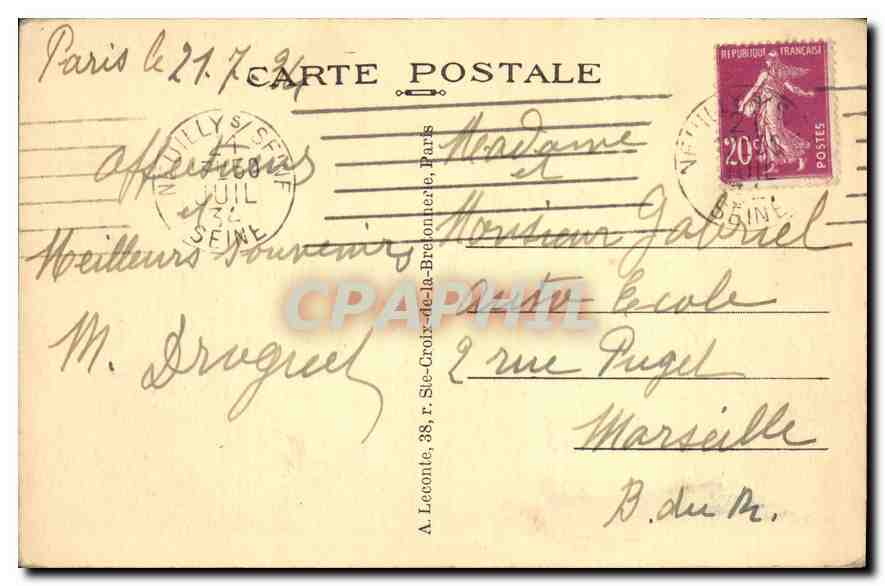 Paris le 21.7.34
CARTE POSTALE
Affectueux
et
Meilleurs Souvenirs
M. Droguet
A. Leconte, 38, r. Ste-Croix-de-la-Bretonnerie, Paris
NEUILLY S/ SEINE
21
JUIL
34
SEINE
REPUBLIQUE FRANÇAISE
20c
POSTES
NEUILLY S
SEINE
Madame
et
Monsieur Gabriel
Auto Ecole
2 rue Puget
Marseille
B. du R.
CPAPHIL